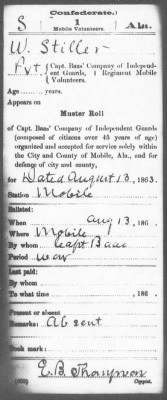 Confederate.
S 1 Ala.
Mobile Volunteers.
W. Stiller
Pvt, Capt. Bass' Company of Independ-
ent Guards, 1 Regiment Mobile
Volunteers.
Age years.
Appears on
Muster Roll
of Capt. Bass' Company of Independent Guards
(composed of citizens over 45 years of age)
organized and accepted for service solely within
the City and County of Mobile, Ala., and for
defense of city and county,
for Dated August 13, 1863.
Station Mobile
Enlisted:
When Aug 13, 186 .
Where Mobile
By whom Capt Bass
Period war
Last paid:
By whom
To what time 186 .
Present or absent
Remarks: Absent
Book mark:
E. B. Thompson
Copyist.